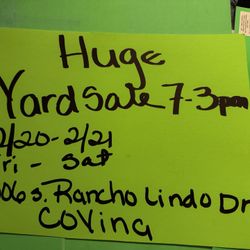 Huge
Yard Sale 7-3pm
2/20-2/21
Fri - Sat
06 S. Rancho Lindo Dr
Covina